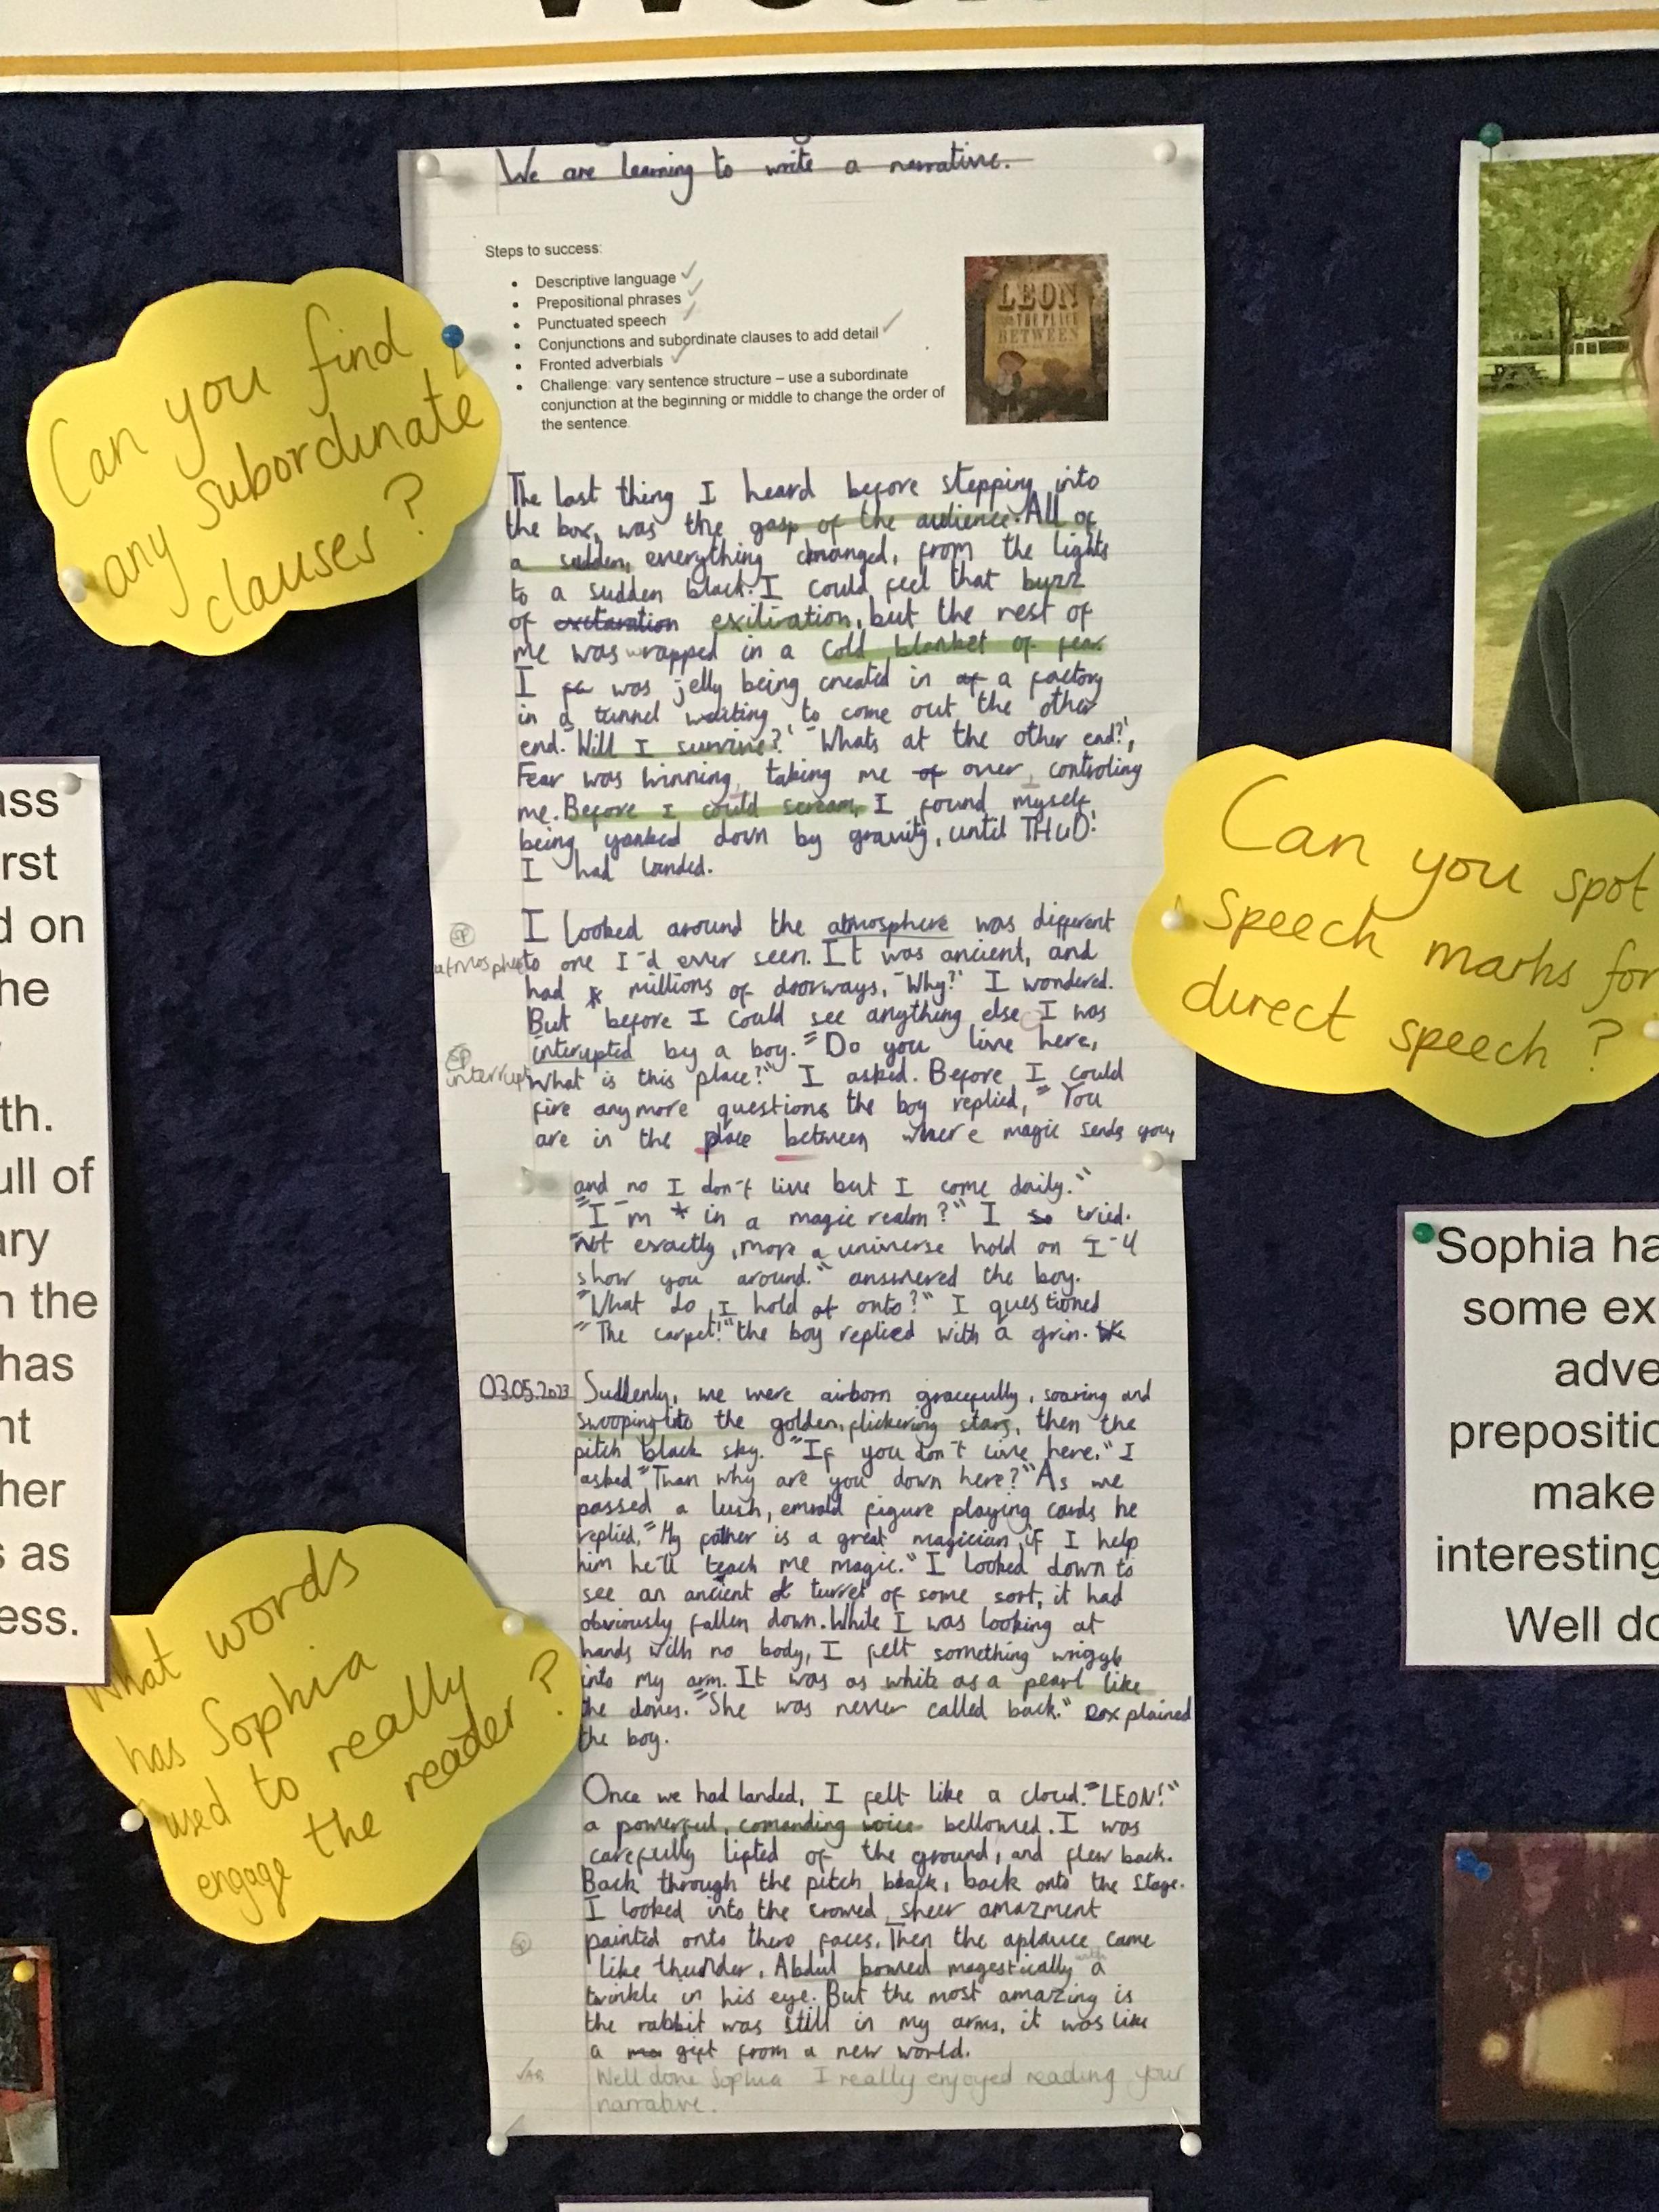 We are learning to write a narrative.
Steps to success:
• Descriptive language ✓
• Prepositional phrases ✓
• Punctuated speech ✓
• Conjunctions and subordinate clauses to add detail ✓
• Fronted adverbials ✓
• Challenge: vary sentence structure – use a subordinate
conjunction at the beginning or middle to change the order of
the sentence.
LEON
AND THE PLACE
BETWEEN
The last thing I heard before stepping into
the box, was the gasp of the audience. All of
a sudden, everything changed, from the lights
to a sudden black. I could feel that buzz
of exiliration, but the rest of
me was wrapped in a cold blanket of fear.
I was jelly being created in a factory
in a tunnel waiting to come out the other
end. 'Will I survive?' 'Whats at the other end?',
Fear was winning, taking me over, controling
me. Before I could scream, I found myself
being yanked down by gravity, until THUD!
I had landed.
I looked around the atmosphere was different
to one I'd ever seen. It was ancient, and
had * millions of doorways, "Why?" I wondered.
But before I could see anything else I was
interupted by a boy. "Do you live here,
What is this place?" I asked. Before I could
fire anymore questions the boy replied, "You
are in the place between where magic sends you,
sp
atmosphe
sp
interrupt
and no I don't live but I come daily."
"I'm * in a magic realm?" I tried.
"Not exactly, more a universe hold on I'll
show you around." answered the boy.
"What do I hold onto?" I questioned
"The carpet!" the boy replied with a grin.
03.05.2023 Suddenly, we were airborn gracefully, soaring and
swooping into the golden, flickering stars, then the
pitch black sky. "If you don't live here." I
asked "Than why are you down here?" As we
passed a lush, emrald figure playing cards he
replied, "My father is a great magician, if I help
him he'll teach me magic." I looked down to
see an ancient turret of some sort, it had
obviously fallen down. While I was looking at
hands with no body, I felt something wriggle
into my arm. It was as white as a pearl like
the doves. "She was never called back." explained
the boy.
Once we had landed, I felt like a cloud. "LEON!"
a powerful, comanding voice bellowed. I was
carefully lifted of the ground, and flew back.
Back through the pitch black, back onto the stage.
I looked into the crowed, sheer amazment
painted onto there faces. Then the aplauce came
like thunder, Abdul bowed magestically with a
twinkle in his eye. But the most amazing is
the rabbit was still in my arms, it was like
a gift from a new world.
Well done Sophia I really enjoyed reading your
narrative.
Can you find
any subordinate
clauses?
Can you spot
speech marks for
direct speech?
What words
has Sophia
used to really
engage the
reader?
ass
rst
d on
he
th.
ull of
ary
n the
has
nt
her
s as
ess.
Sophia ha
some ex
adve
prepositio
make
interesting
Well do